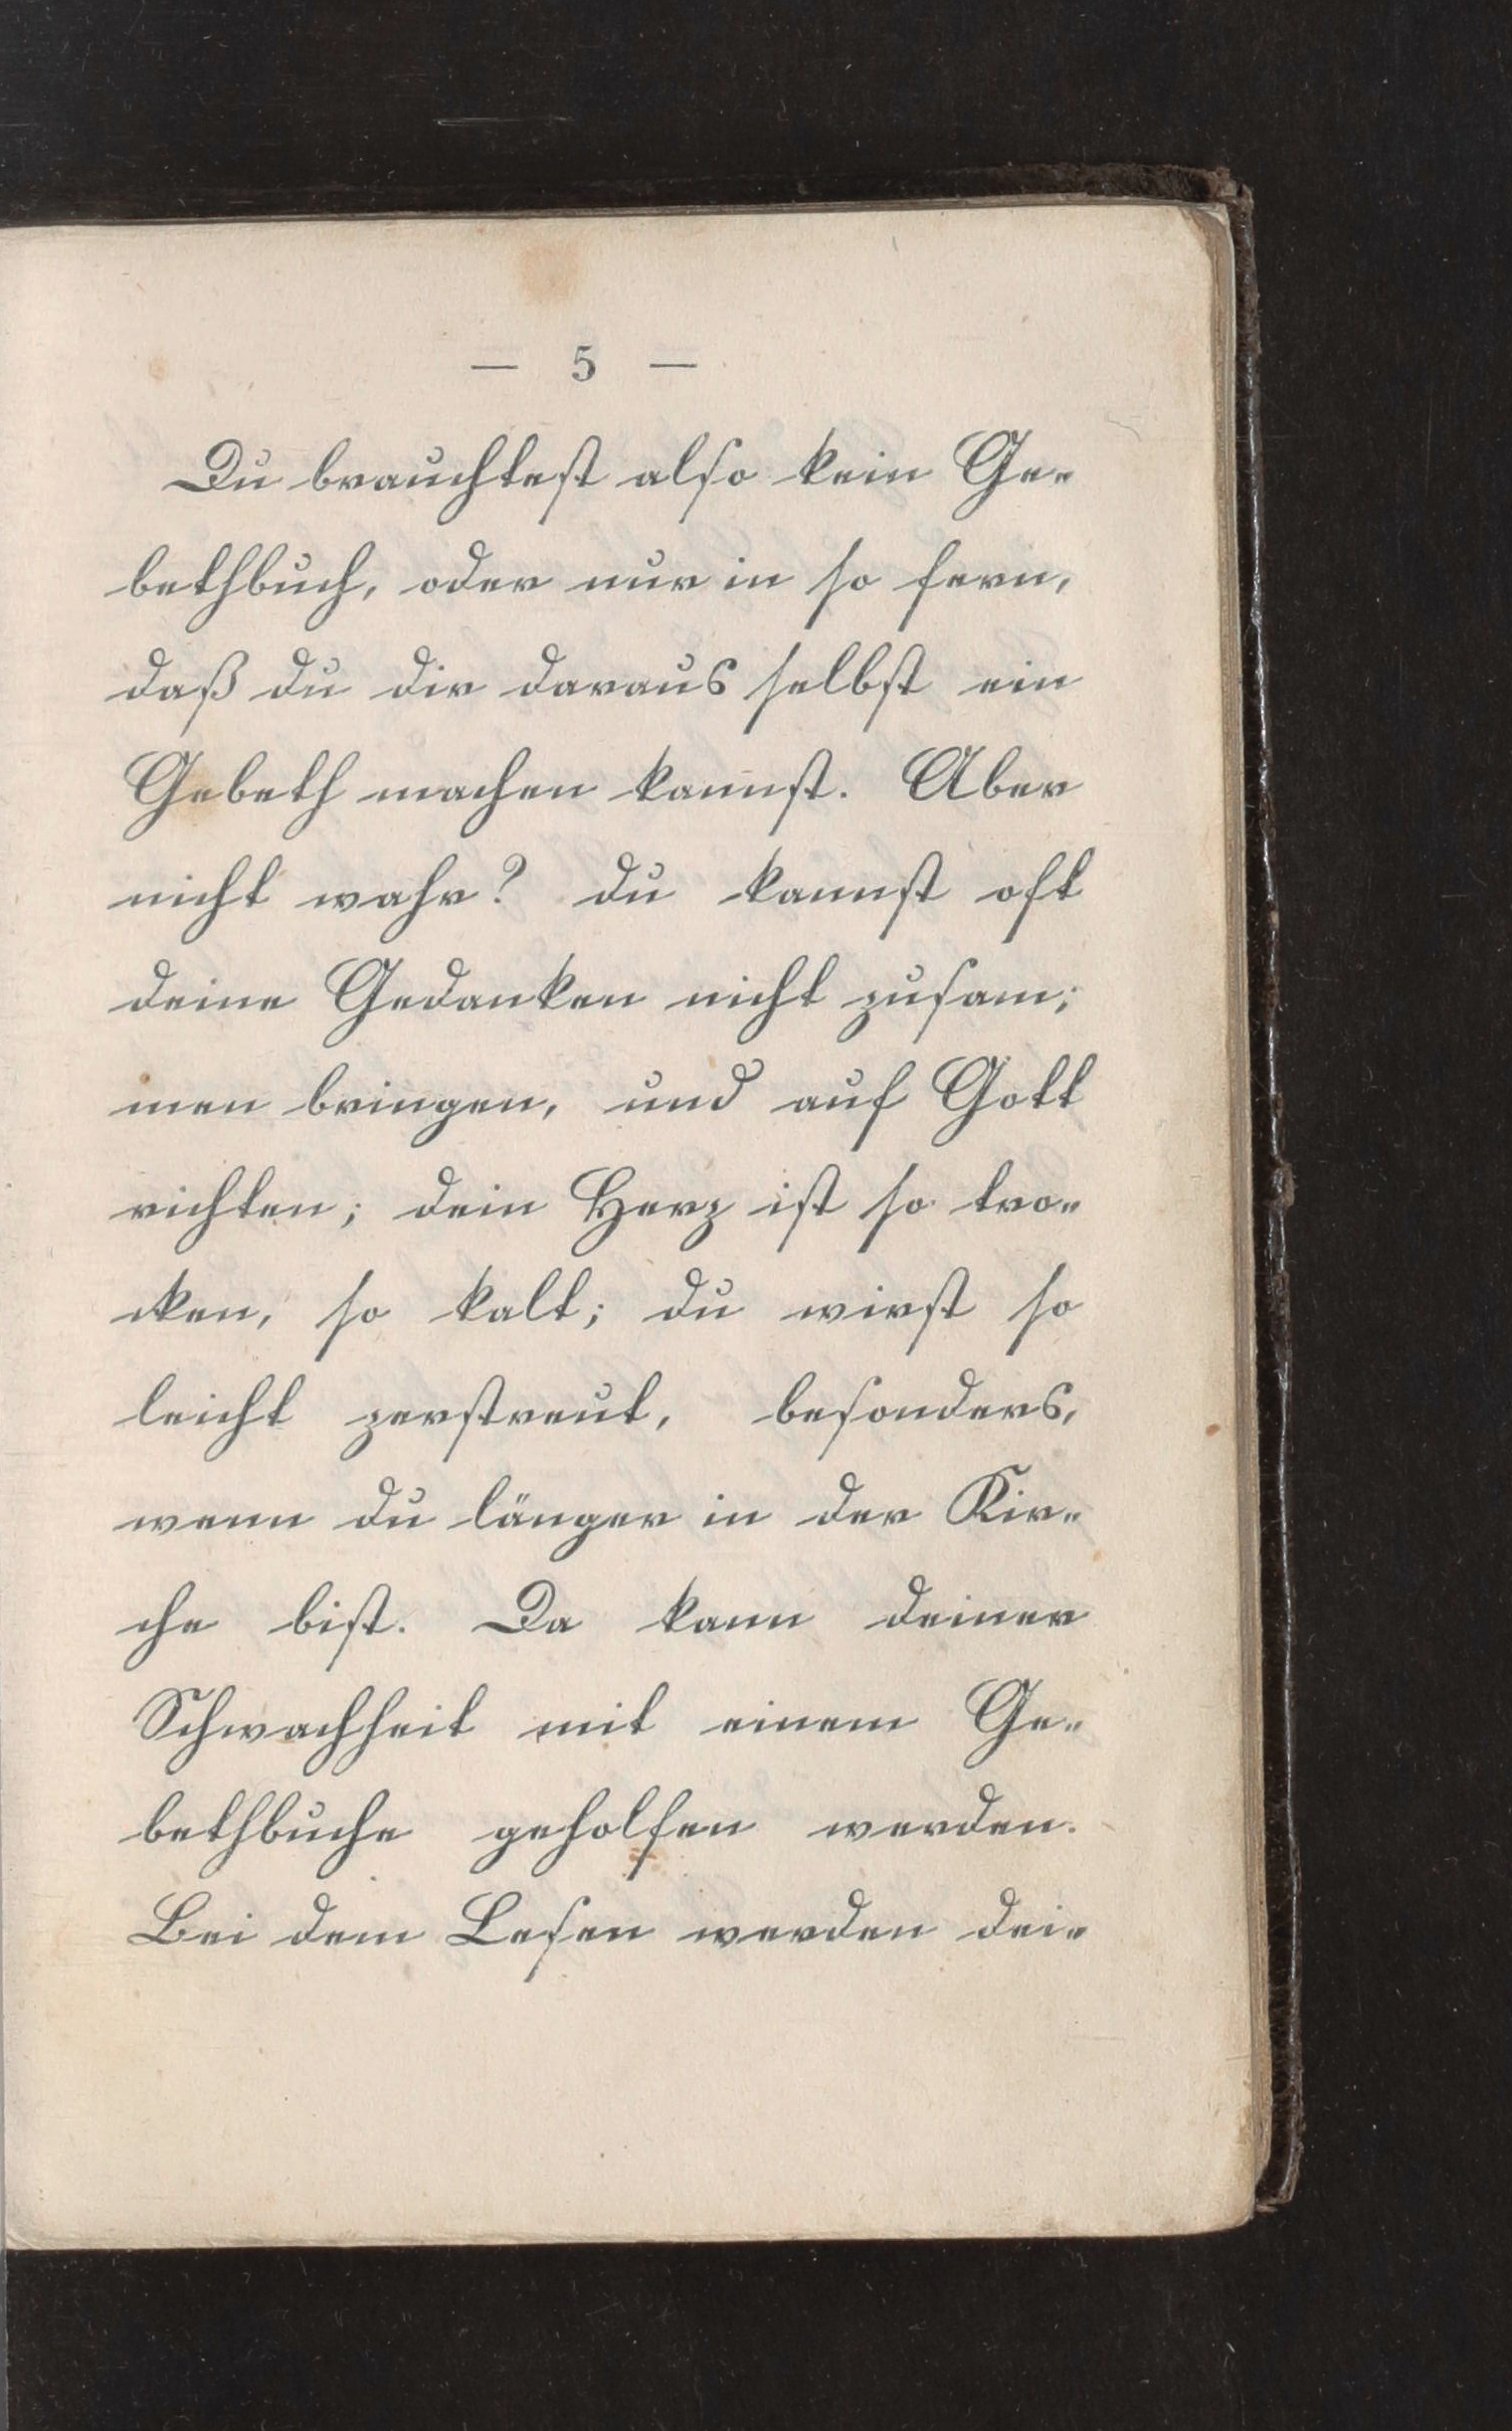 — 5 —
Du brauchtest also kein Ge-
bethbuch, oder nur in so fern,
daß du dir daraus selbst ein
Gebeth machen kannst. Aber
nicht wahr? du kannst oft
deine Gedanken nicht zusam-
men bringen, und auf Gott
richten; dein Herz ist so tro-
cken, so kalt; du wirst so
leicht zerstreut, besonders,
wenn du länger in der Kir-
che bist. Da kann deiner
Schwachheit mit einem Ge-
bethbuche geholfen werden.
Bei dem Lesen werden dei-